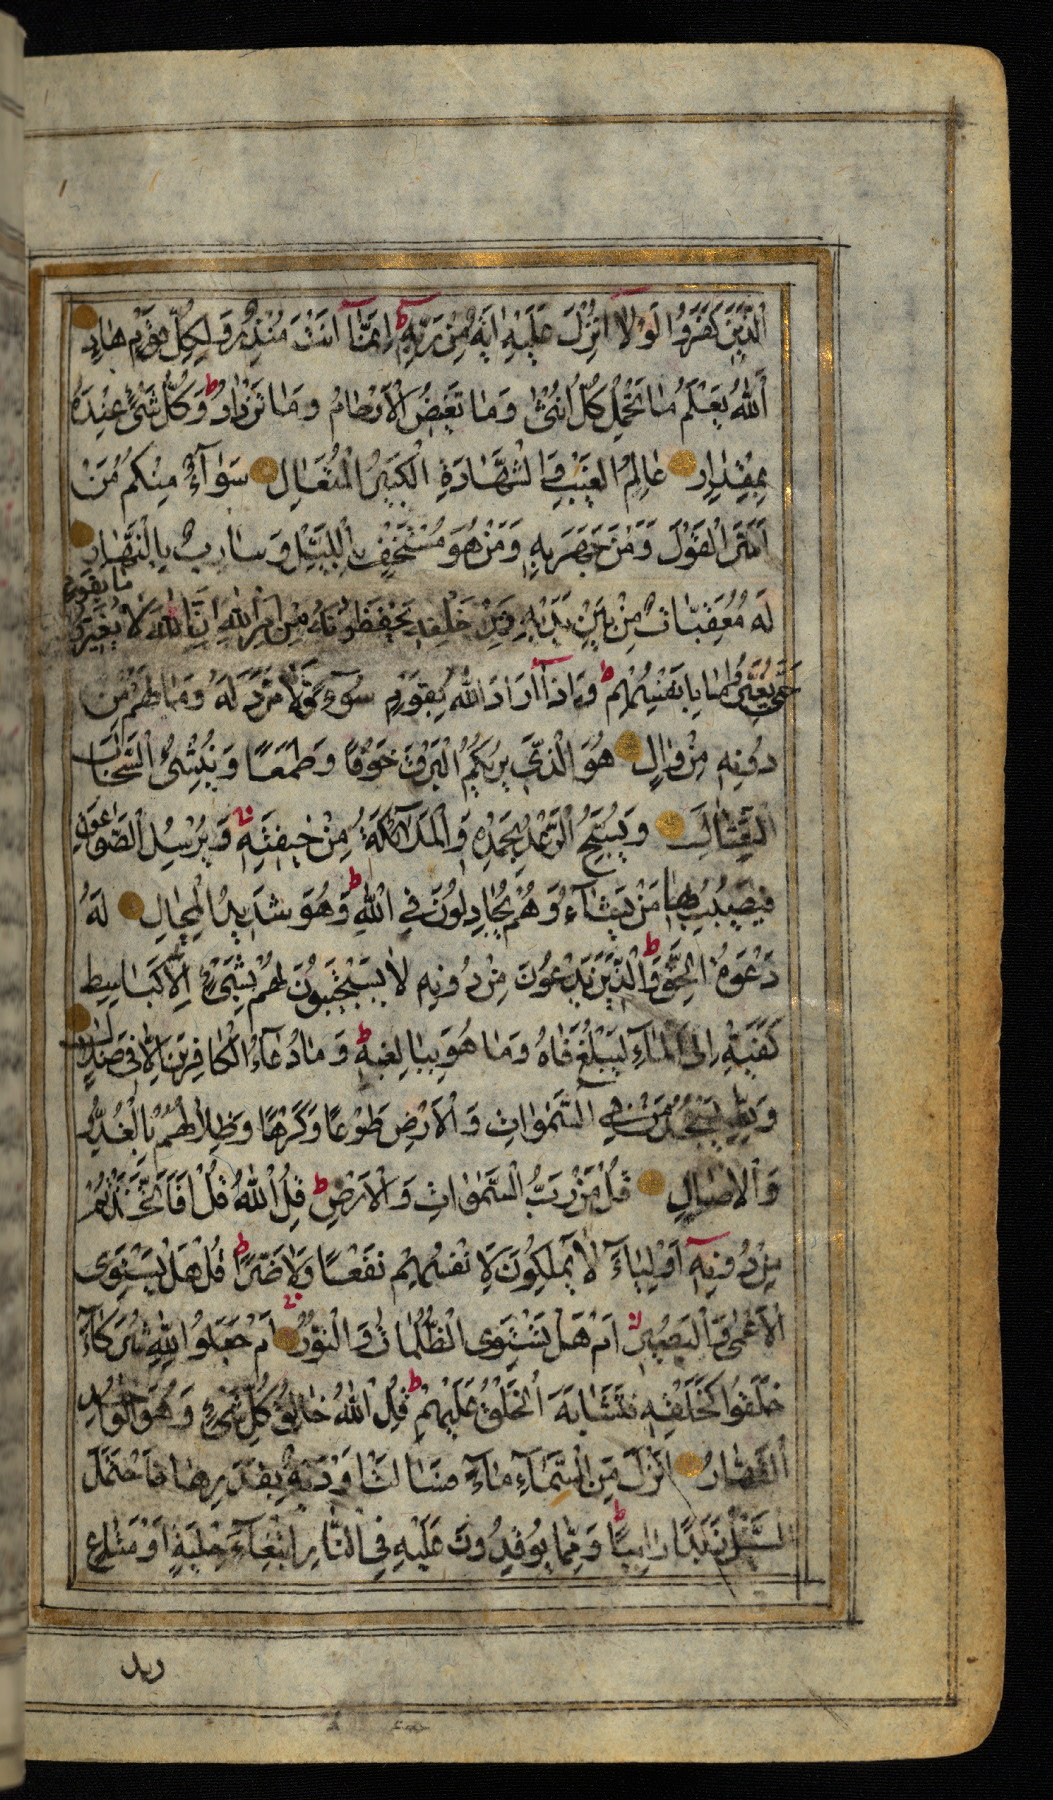 الَّذِينَ كَفَرُوا لَوْلَا أُنْزِلَ عَلَيْهِ اٰيَةٌ مِنْ رَبِّهِ اِنَّمَا اَنْتَ مُنْذِرٌ وَلِكُلِّ قَوْمٍ هَادٍ
اَللّٰهُ يَعْلَمُ مَا تَحْمِلُ كُلُّ اُنْثٰى وَمَا تَغِيضُ الْاَرْحَامُ وَمَا تَزْدَادُ ط وَكُلُّ شَيْءٍ عِنْدَهُ
بِمِقْدَارٍ عَالِمُ الْغَيْبِ وَالشَّهَادَةِ الْكَبِيرُ الْمُتَعَالِ سَوَآءٌ مِنْكُمْ مَنْ
اَسَرَّ الْقَوْلَ وَمَنْ جَهَرَ بِهِ وَمَنْ هُوَ مُسْتَخْفٍ بِاللَّيْلِ وَسَارِبٌ بِالنَّهَارِ
لَهُ مُعَقِّبَاتٌ مِنْ بَيْنِ يَدَيْهِ وَمِنْ خَلْفِهِ يَحْفَظُونَهُ مِنْ اَمْرِ اللّٰهِ اِنَّ اللّٰهَ لَا يُغَيِّرُ مَا بِقَوْمٍ
حَتّٰى يُغَيِّرُوا مَا بِاَنْفُسِهِمْ ط وَاِذَآ اَرَادَ اللّٰهُ بِقَوْمٍ سُوٓءًا فَلَا مَرَدَّ لَهُ وَمَا لَهُمْ مِنْ
دُونِهِ مِنْ وَالٍ هُوَ الَّذِي يُرِيكُمُ الْبَرْقَ خَوْفًا وَطَمَعًا وَيُنْشِئُ السَّحَابَ
الثِّقَالَ وَيُسَبِّحُ الرَّعْدُ بِحَمْدِهِ وَالْمَلَآئِكَةُ مِنْ خِيفَتِهِ وَيُرْسِلُ الصَّوَاعِقَ
فَيُصِيبُ بِهَا مَنْ يَشَآءُ وَهُمْ يُجَادِلُونَ فِي اللّٰهِ ط وَهُوَ شَدِيدُ الْمِحَالِ لَهُ
دَعْوَةُ الْحَقِّ ط وَالَّذِينَ يَدْعُونَ مِنْ دُونِهِ لَا يَسْتَجِيبُونَ لَهُمْ بِشَيْءٍ اِلَّا كَبَاسِطِ
كَفَّيْهِ اِلَى الْمَآءِ لِيَبْلُغَ فَاهُ وَمَا هُوَ بِبَالِغِهِ ط وَمَا دُعَآءُ الْكَافِرِينَ اِلَّا فِي ضَلَالٍ
وَلِلّٰهِ يَسْجُدُ مَنْ فِي السَّمٰوَاتِ وَالْاَرْضِ طَوْعًا وَكَرْهًا وَظِلَالُهُمْ بِالْغُدُوِّ
وَالْاٰصَالِ قُلْ مَنْ رَبُّ السَّمٰوَاتِ وَالْاَرْضِ ط قُلِ اللّٰهُ قُلْ اَفَاتَّخَذْتُمْ
مِنْ دُونِهِ اَوْلِيَآءَ لَا يَمْلِكُونَ لِاَنْفُسِهِمْ نَفْعًا وَلَا ضَرًّا ط قُلْ هَلْ يَسْتَوِي
الْاَعْمٰى وَالْبَصِيرُ اَمْ هَلْ تَسْتَوِي الظُّلُمَاتُ وَالنُّورُ اَمْ جَعَلُوا لِلّٰهِ شُرَكَآءَ
خَلَقُوا كَخَلْقِهِ فَتَشَابَهَ الْخَلْقُ عَلَيْهِمْ ط قُلِ اللّٰهُ خَالِقُ كُلِّ شَيْءٍ وَهُوَ الْوَاحِدُ
الْقَهَّارُ اَنْزَلَ مِنَ السَّمَآءِ مَآءً فَسَالَتْ اَوْدِيَةٌ بِقَدَرِهَا فَاحْتَمَلَ
السَّيْلُ زَبَدًا رَابِيًا ط وَمِمَّا يُوقِدُونَ عَلَيْهِ فِي النَّارِ ابْتِغَآءَ حِلْيَةٍ اَوْ مَتَاعٍ